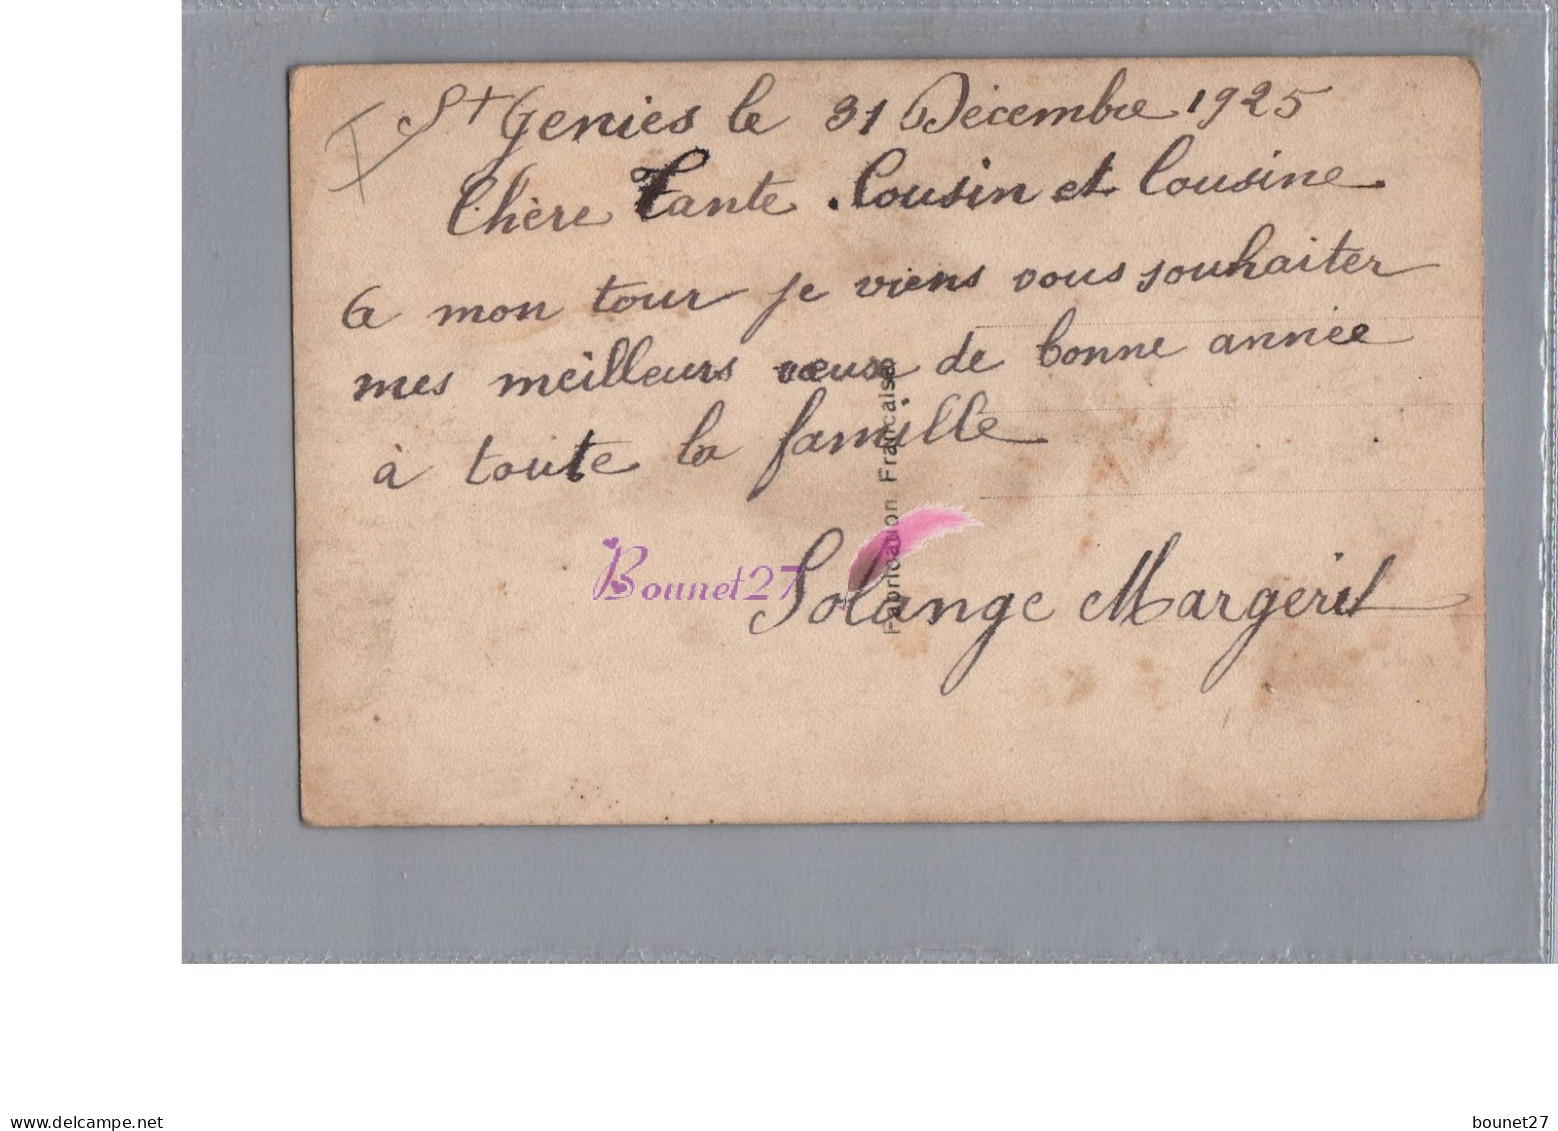 St Genies le 31 Décembre 1925
Chère Tante Cousin et Cousine
a mon tour je viens vous souhaiter
mes meilleurs vœux de bonne année
à toute la famille
Fabrication Française
Bounet27
Solange Margerit
www.delcampe.net
bounet27